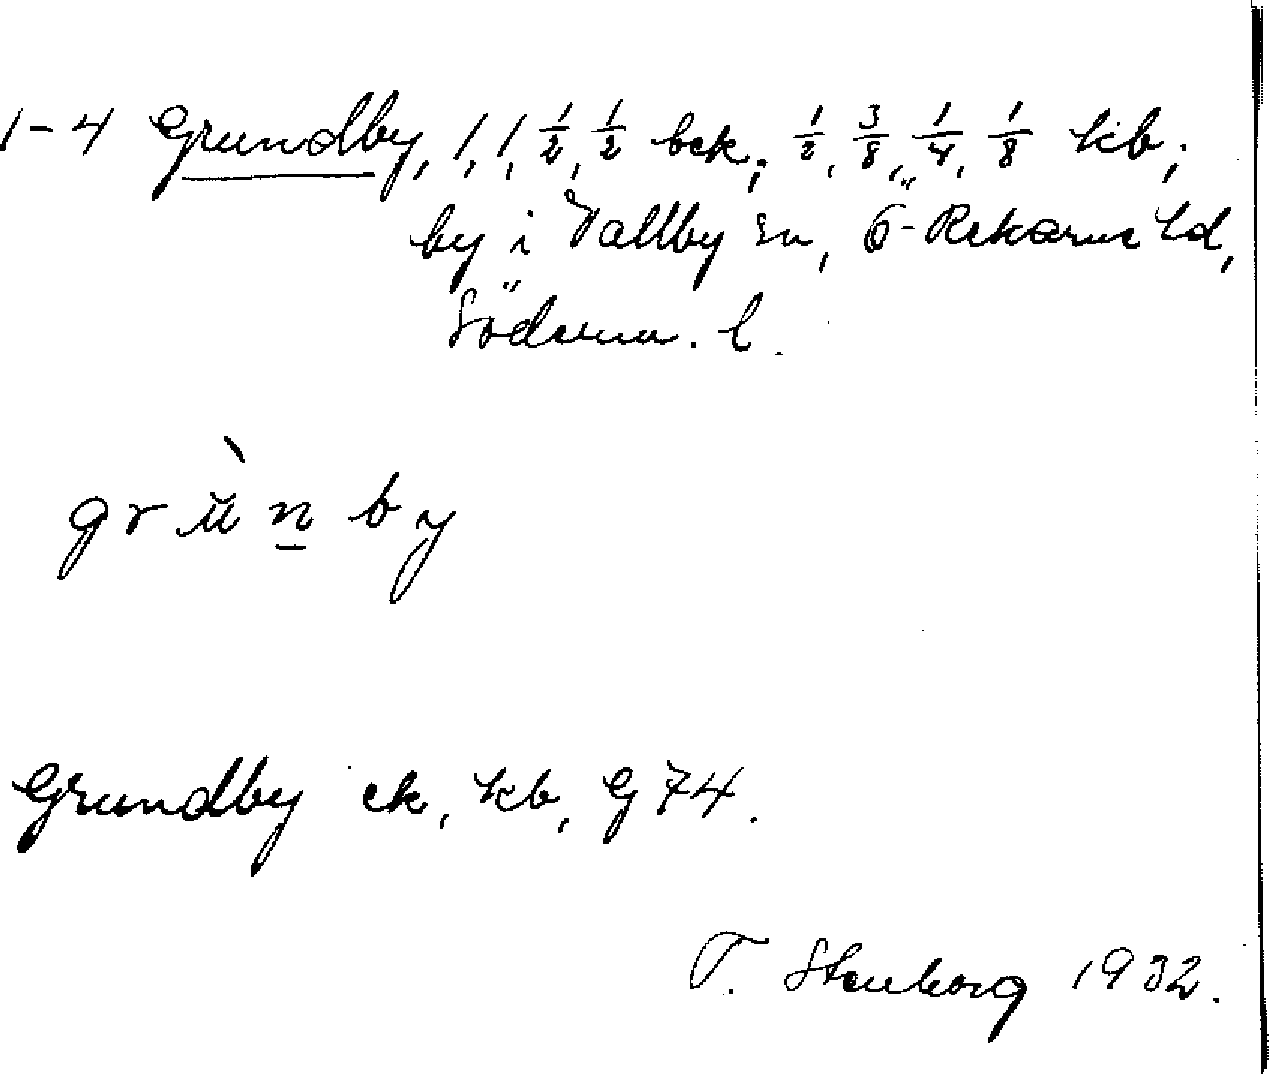 1-4 Grundby, 1, 1, 1/2, 1/2 bck, 1/2, 3/8, 1/4, 1/8 kb;
by i Vallby sn, Ö-Rekarne hd,
Söderm. l.
grùn̲by
Grundby ck, kb, G 74.
T. Stenborg 1932.